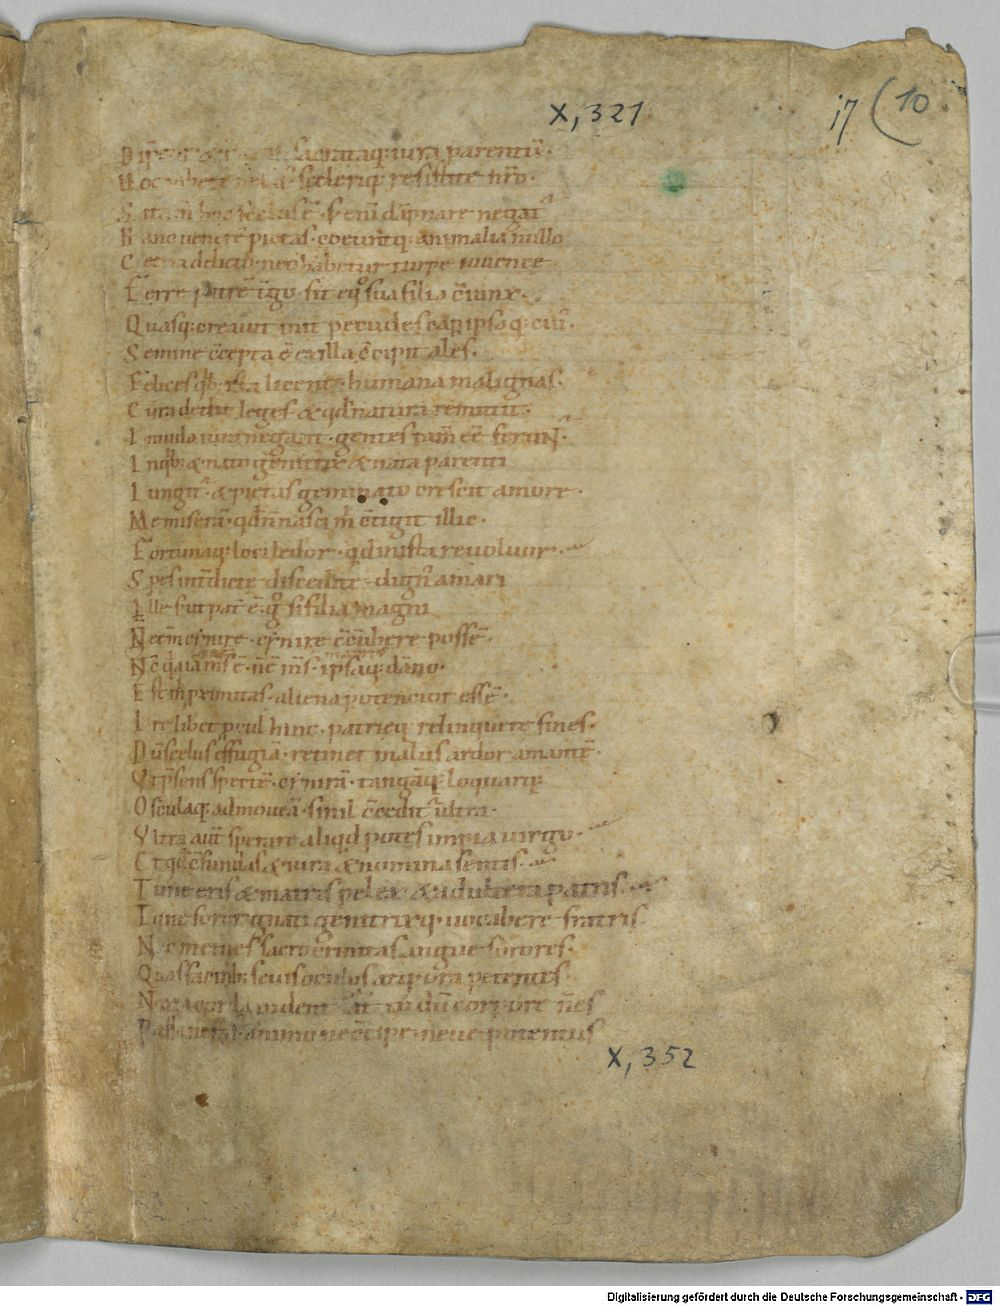 X, 321
17 (10
sacrataq; iura parentū.
sceleriq; resistite nr̄o.
S scelus ē. s; eni dāpnare negat᷑
H anc uenerē pietas. coeuntq; animalia nullo
C etera delicto. nec habetur turpe iuuence
F erre patrē t̄go. fit eq̊ sua filia c̄iunx.
Quasq; creauit init pecudes cap. ipsaq; cui᷒.
S emine c̄cepta ē ex illa c̄cipit ales.
F elices qb; ista licent. humana malignas.
C ura dedit leges & qd̄ natura remittit.
I nuida iura negant. gentes tam̄ eē ferunt᷑.
I n qb; & nato genitrix & nata parenti
I ungit᷑. & pietas geminato crescit amore.
M e miserā. qd̄ n̄ nasci m̄ c̄tigit illic.
F ortunaq; loci ledor. qd̄ in ista reuoluor.
S pes int̄dicte discedite. dign᷒ amari
I lle s; ut pat̄ ē. g̊ si filia magni
N c̄cūbere possē.
N c̄ ipsaq; dāno.
E st m̄ proximitas. aliena potencior essē.
I re libet p̄cul hinc. patrieq; relinquere fines.
D ū scelus effugiā. retinet malus ardor amantē.
V t p̄sens spectē. tangāq; loquarq;
O sculaq; admoueā. si nil c̄cedit᷑ ultra.
V ltra aut̄ sperare aliqd potes impia uirgo.
& iura & nomina sentis.
T une eris & matris pelex & adultera patris.
T une soror gnati genitrixq; uocabere fratris.
N ec metues sacro crinitas angue sorores.
Quas facib; seuis oculos atq; ora petentes
N corpore n̄ es
P animo ne c̄cipe. neue potentis
X, 352
Digitalisierung gefördert durch die Deutsche Forschungsgemeinschaft - DFG